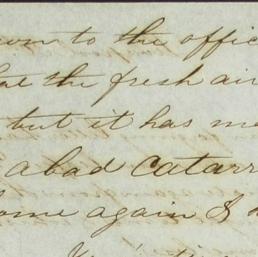 own to the offic
the fresh air
but it has m
a bad catarr
ome again &